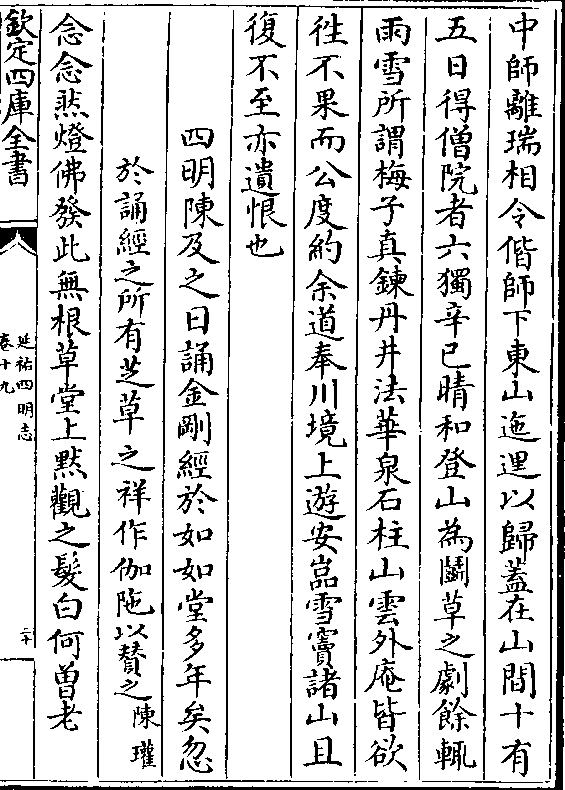 中師離瑞相令偕師下東山迤邐以歸蓋在山間十有
五日得僧院者六獨辛巳晴和登山為鬭草之劇餘輒
雨雪所謂梅子真鍊丹井法華泉石柱山雲外庵皆欲
徃不果而公度約余道奉川境上遊安嵓雪竇諸山且
復不至亦遺恨也
四明陳及之日誦金剛經於如如堂多年矣忽
於誦經之所有芝草之祥作伽陁以賛之陳瓘
念念㷊燈佛發此無根草堂上黙觀之髮白何曾老
欽定四庫全書
延祐四明志
卷十九
二十